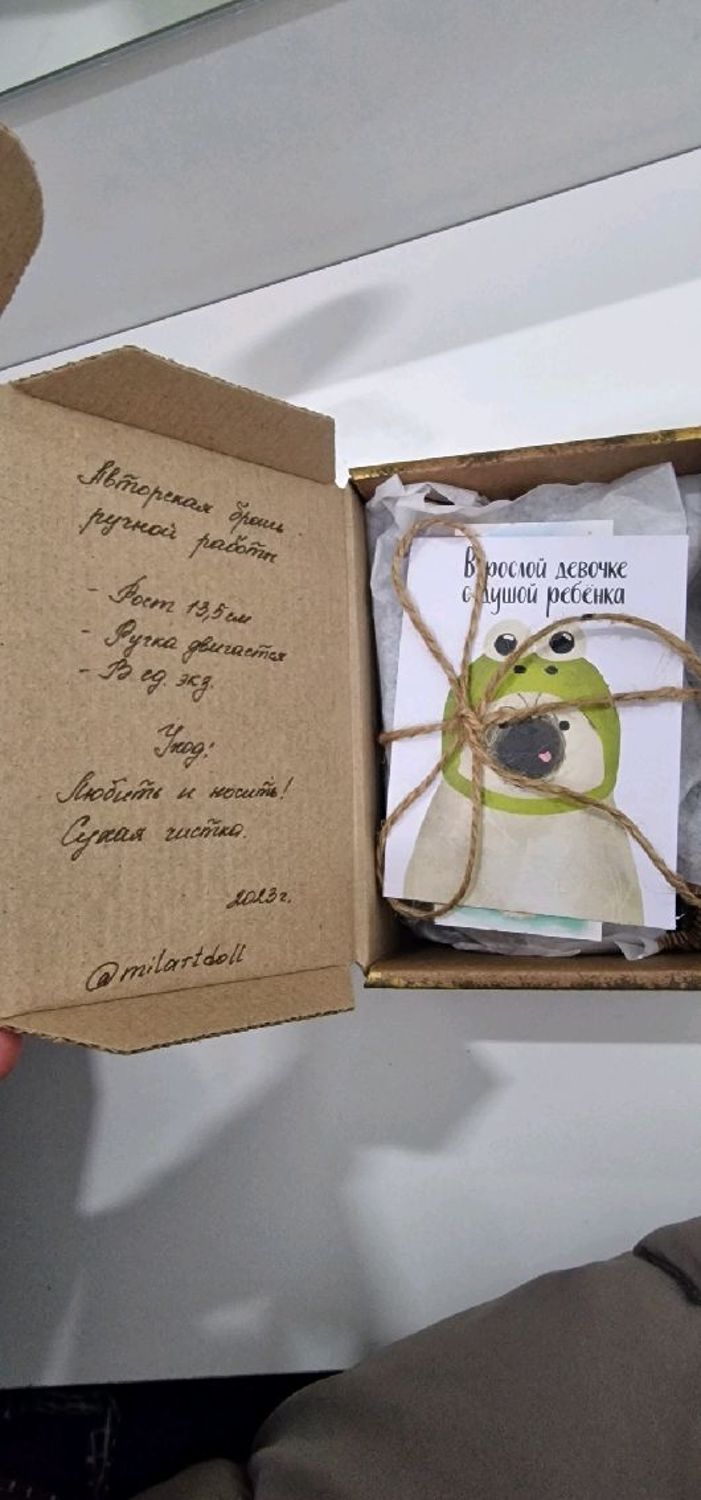 Авторская брошь
ручной работы
- Рост 13,5 см
- Ручка двигается
- В ед. экз.
Уход:
Любить и носить!
Сухая чистка.
2023г.
@milartdoll
Взрослой девочке
с душой ребёнка